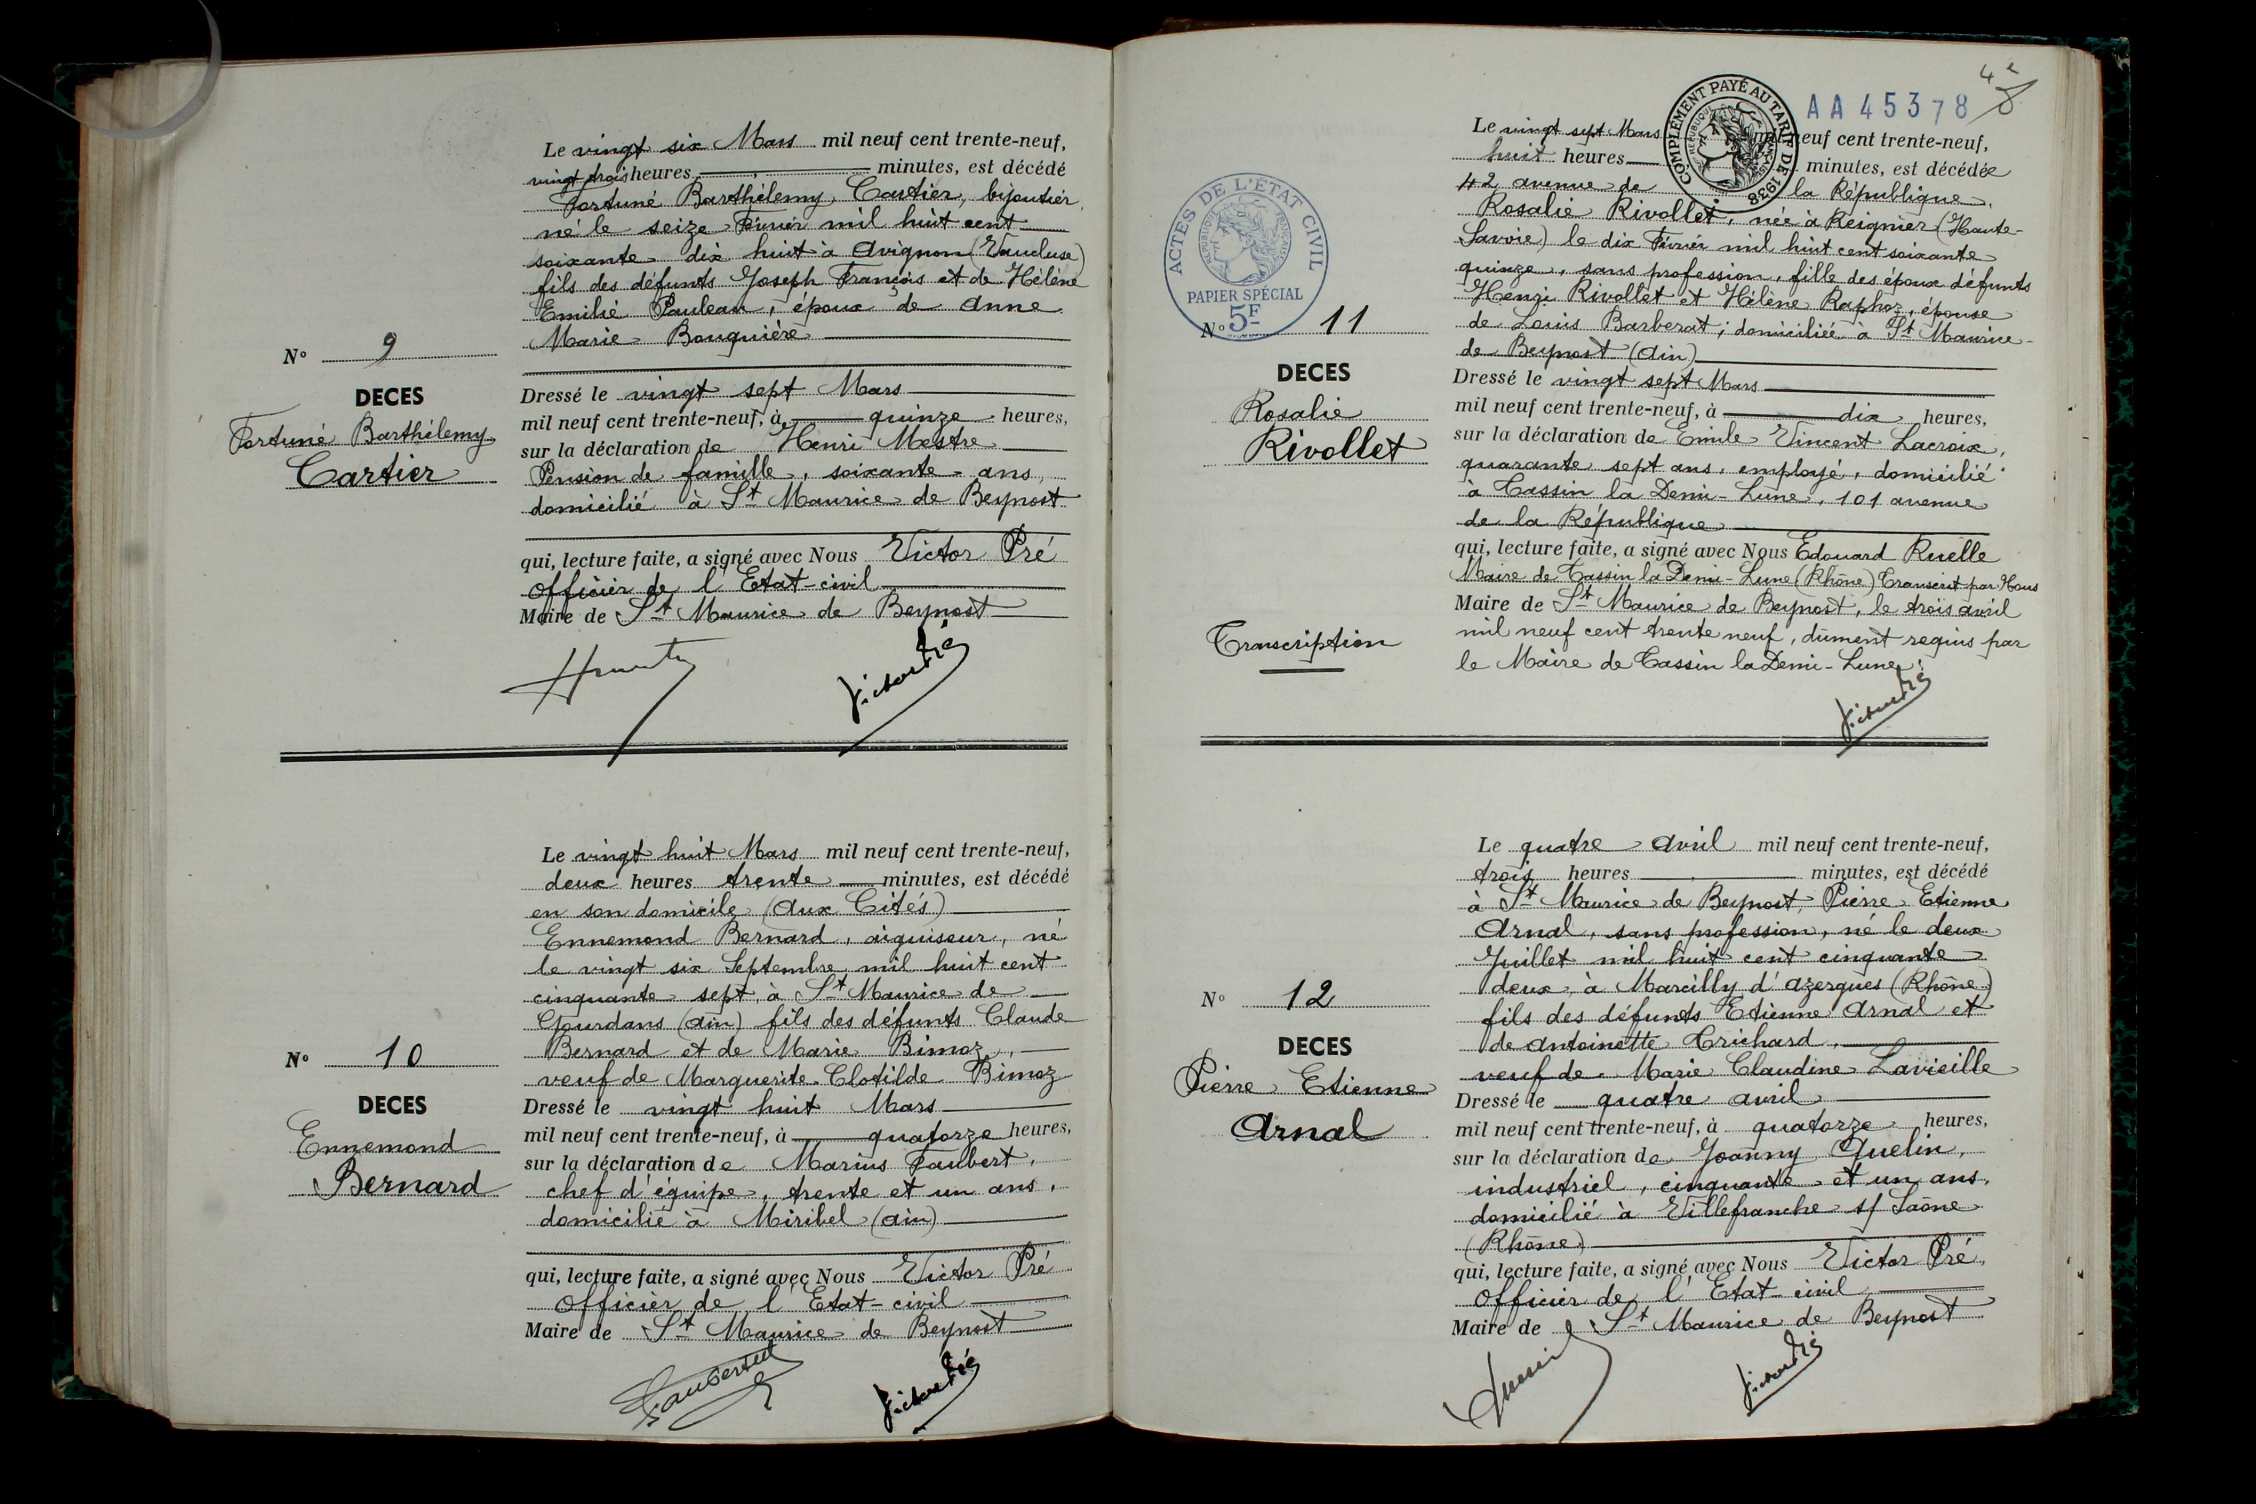 N° 9
DECES
Fortuné Barthélemy
Cartier
Le vingt six Mars mil neuf cent trente-neuf,
vingt trois heures minutes, est décédé
Fortuné Barthélemy Cartier, bijoutier,
né le seize Février mil huit cent
soixante dix huit à Avignon (Vaucluse)
fils des défunts Joseph François et de Hélène
Emilié Pauleau, époux de Anne
Marie Bouquière
Dressé le vingt sept Mars
mil neuf cent trente-neuf, à quinze heures,
sur la déclaration de Henri Mestre
Pension de famille, soixante ans,
domicilié à St Maurice de Beynost
qui, lecture faite, a signé avec Nous Victor Pré
Officier de l'Etat-civil
Maire de St Maurice de Beynost
Victor Pré
N° 10
DECES
Ennemond
Bernard
Le vingt huit Mars mil neuf cent trente-neuf,
deux heures trente minutes, est décédé
en son domicile (Aux Cités)
Ennemond Bernard, aiguiseur, né
le vingt six Septembre mil huit cent
cinquante sept à St Maurice de
Gourdans (Ain) fils des défunts Claude
Bernard et de Marie Bimoz,
veuf de Marguerite Clotilde Bimoz
Dressé le vingt huit Mars
mil neuf cent trente-neuf, à quatorze heures,
sur la déclaration de Marius Faubert,
chef d'équipe, trente et un ans,
domicilié à Miribel (Ain)
qui, lecture faite, a signé avec Nous Victor Pré
Officier de l'Etat-civil
Maire de St Maurice de Beynost
Faubert
Victor Pré
AA 45378
COMPLÉMENT PAYÉ AU TARIF DE 1938
ACTES DE L'ÉTAT CIVIL
RÉPUBLIQUE FRANÇAISE
PAPIER SPÉCIAL
5F
N° 11
DECES
Rosalie
Rivollet
Transcription
Le vingt sept Mars mil neuf cent trente-neuf,
huit heures minutes, est décédée
42 avenue de la République,
Rosalie Rivollet, née à Reignier (Haute-
Savoie) le dix Février mil huit cent soixante
quinze, sans profession, fille des époux défunts
Henri Rivollet et Hélène Raphoz, épouse
de Louis Barberat; domiciliée à St Maurice
de Beynost (Ain)
Dressé le vingt sept Mars
mil neuf cent trente-neuf, à dix heures,
sur la déclaration de Emile Vincent Lacroix,
quarante sept ans, employé, domicilié
à Tassin la Demi-Lune, 101 avenue
de la République
qui, lecture faite, a signé avec Nous Edouard Ruelle
Maire de Tassin la Demi-Lune (Rhône) Transcrit par Nous
Maire de St Maurice de Beynost, le trois avril
mil neuf cent trente neuf, dûment requis par
le Maire de Tassin la Demi-Lune.
Victor Pré
N° 12
DECES
Pierre Etienne
Arnal
Le quatre Avril mil neuf cent trente-neuf,
trois heures minutes, est décédé
à St Maurice de Beynost, Pierre Etienne
Arnal, sans profession, né le deux
Juillet mil huit cent cinquante
deux, à Marcilly d'Azergues (Rhône)
fils des défunts Etienne Arnal et
de Antoinette Trichard,
veuf de Marie Claudine Lavieille
Dressé le quatre avril
mil neuf cent trente-neuf, à quatorze heures,
sur la déclaration de Joanny Guelin,
industriel, cinquante et un ans,
domicilié à Villefranche s/ Saône
(Rhône)
qui, lecture faite, a signé avec Nous Victor Pré,
Officier de l'Etat-civil
Maire de St Maurice de Beynost
Victor Pré